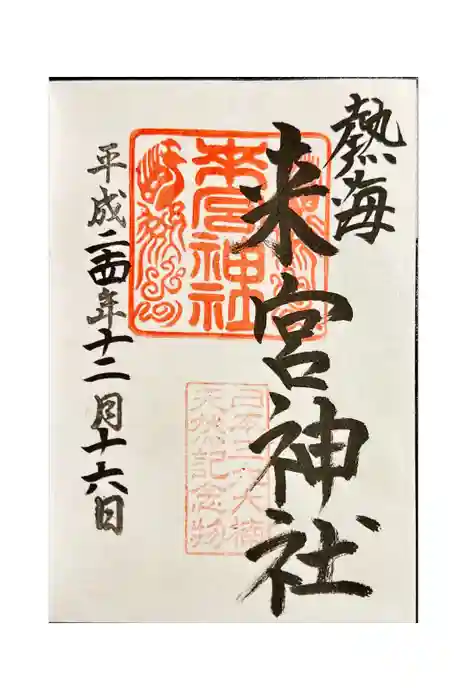 熱海
来宮神社
来宮神社
日本三大楠
天然記念物
平成二十四年十二月十六日